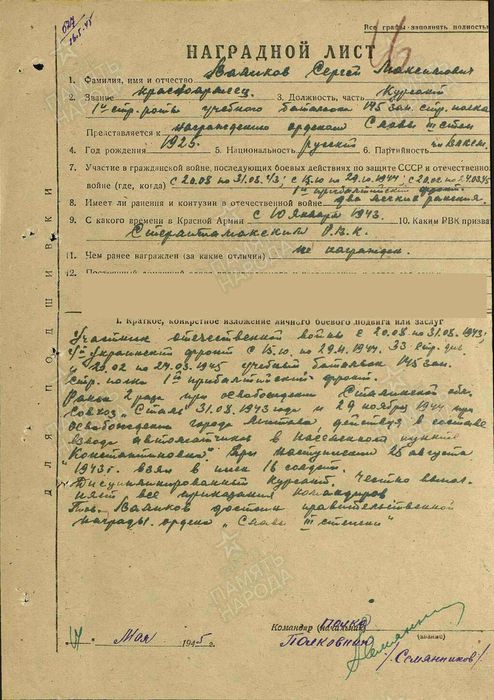 18.5.45
Все графы заполнять полностью
НАГРАДНОЙ ЛИСТ
1. Фамилия, имя и отчество Валиков Сергей Максимович
2. Звание красноармеец 3. Должность, часть Курсант
1й стр. роты учебного батальона 145 зап. стр. полка
Представляется к награждению орденом Славы III степ
4. Год рождения 1925 5. Национальность русский 6. Партийность чл ВЛКСМ.
7. Участие в гражданской войне, последующих боевых действиях по защите СССР и отечественной
войне (где, когда) с 20.08 по 31.08.43; с 15.10 по 29.11.1944; с 20.02 по
1й прибалтийский фронт
8. Имеет ли ранения и контузии в отечественной войне два легких ранения.
9. С какого времени в Красной Армии с 10 января 1943. 10. Каким РВК призва
Стерлитамакским Р.В.К.
11. Чем ранее награжден (за какие отличия) не награжден.
12.
1. Краткое, конкретное изложение личного боевого подвига или заслуг
Участник отечественной войны с 20.08 по 31.08.1943;
Украинский фронт с 15.10. по 29.11.1944. 33 стр. див.
и 20.02 по 24.03.1945 учебный батальон 145 зап.
стр. полка 1й прибалтийский фронт.
Ранен 2 раза при освобождении Сталинской обл.
совхоз „Сталь" 31.08.1943 года и 29 ноября 1944 при
освобождении города действуя в составе
взвода автоматчиков в населенном пункте
"Константиновка". При наступлении 25 августа
1943 г. взял в плен 16 солдат.
Дисциплинированный курсант. Честно выпол-
няет все приказания командиров
Тов. Валиков достоин правительственной
награды ордена „Слава III степени"
ДЛЯ ПОДШИВКИ
Командир (начальник) полка
Полковник (звание)
/Семянников/
17 " Мая 1945 г.
ПАМЯТЬ НАРОДА